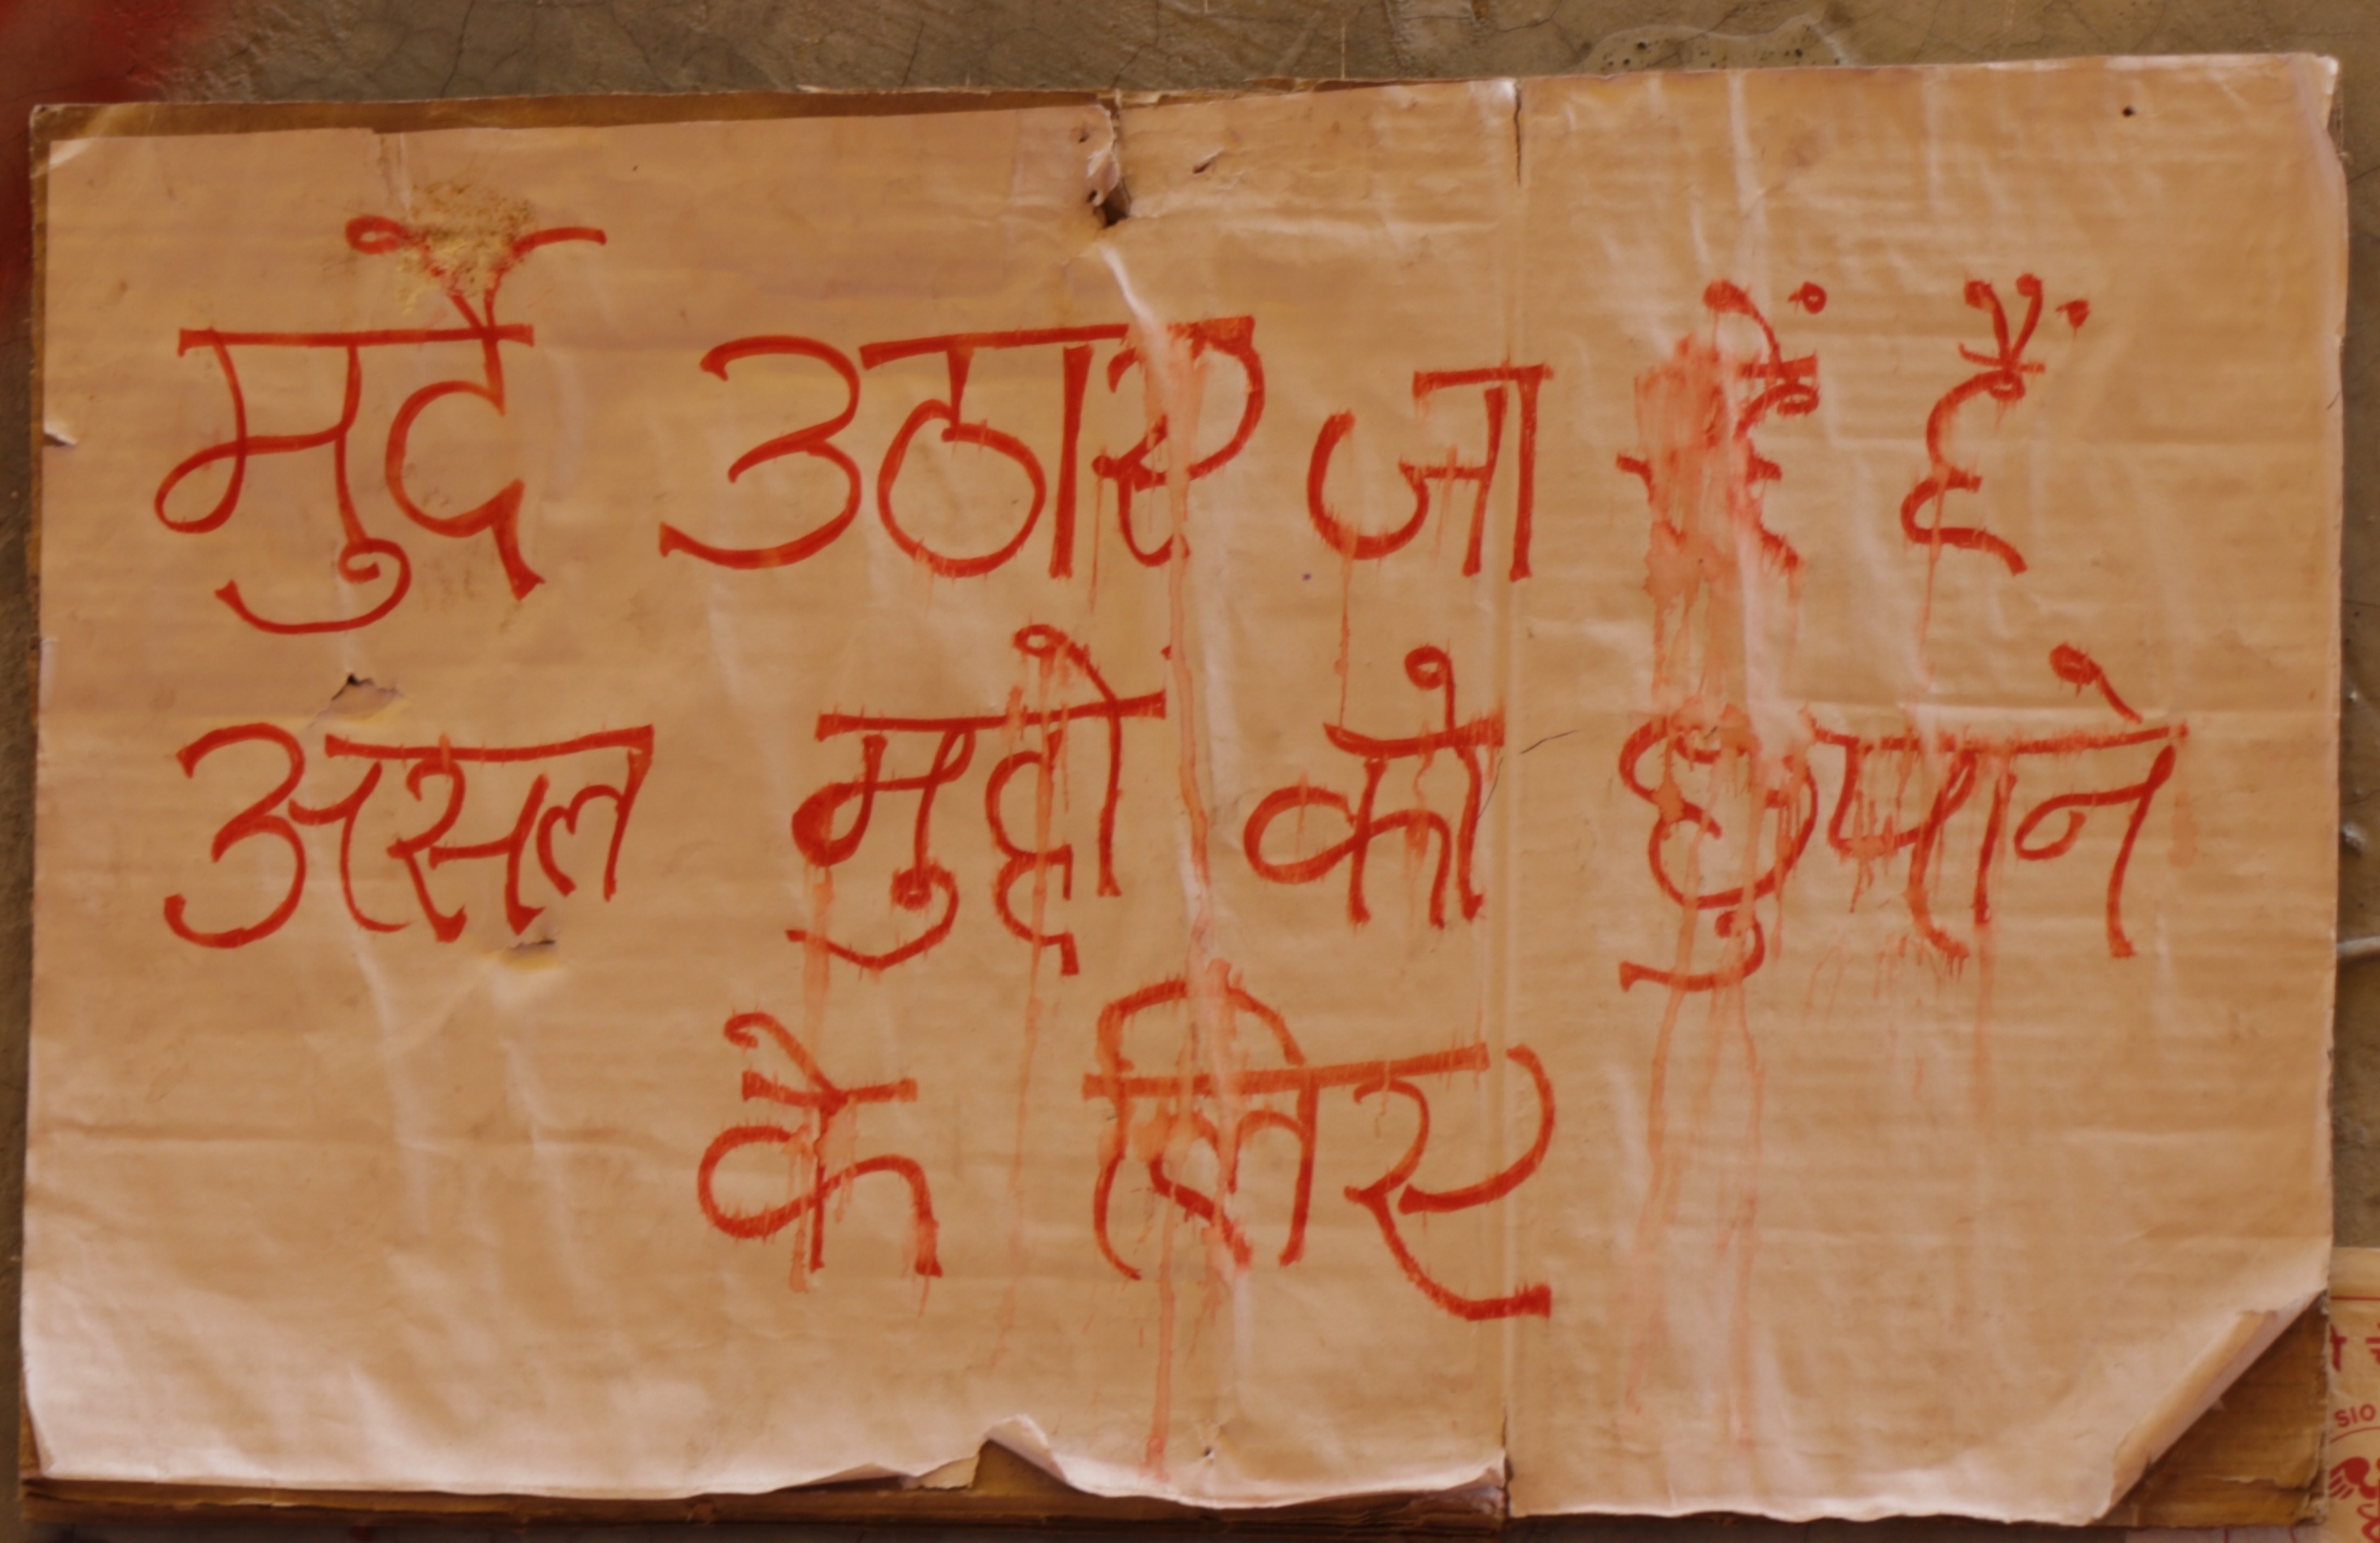 मुर्दे उठाए जा रहें हैं
असल मुद्दो को छुपाने
के लिए